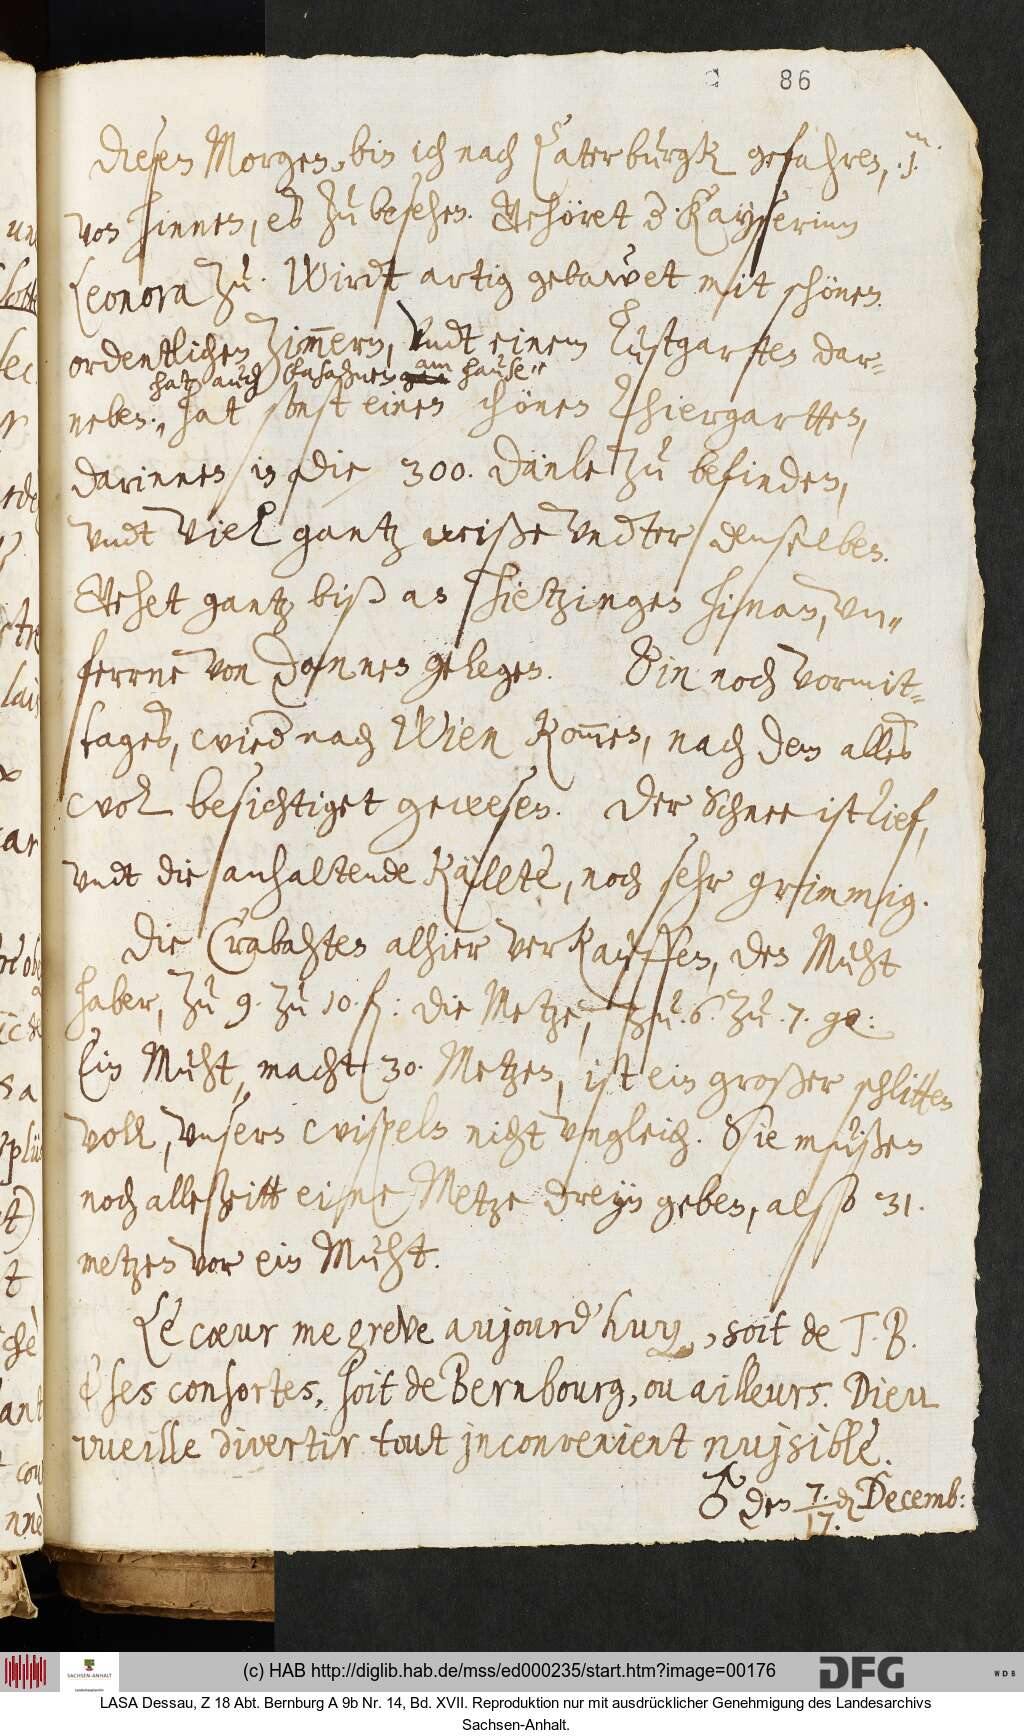 86
Diesen Morgen, bin ich nach Caterburgk gefahren, .1. m.
von hinnen, es zu besehen. Gehöret d. Kayserinn
Leonora zu. Wirdt artig gebawet mit schönen
ordentlichen Zim̅ern, Vndt einem Lustgartten dar-
hatt auch Phasahnen am hause
neben, hat sonst einen schönen Thiergartten,
darinnen in die 300. Dänle zu befinden,
vndt viel gantz weiße vndter denselben.
Gehet gantz biß an Hietzingen hinan, vn-
ferrne von Dannen gelegen. Bin noch vormit-
tages, wied nach Wien kom̅en, nach dem alles
wol besichtiget gewesen. Der Schnee ist tief,
vndt die anhaltende Källte, noch sehr grimmig.
Die Crabahten alhier verkauffen, den Muht
haber, zu 9. zu 10. fl: die Metze, zu .6. zu .7. gr:
Ein Muht, macht 30. Metzen, ist ein großer schlitten
voll, vnsern wispeln nicht vngleich. Sie müßen
noch alleßeitt eine Metze dreyn geben, alßo 31.
metzen vor ein Muht.
Le cœur me greve aujourd'huy, soit de T. B.
& ses consortes, soit de Bernbourg, ou ailleurs. Dieu
vueille divertir tout jnconvenient nuysible.
♂ den 7. / 17. Decemb:
(c) HAB http://diglib.hab.de/mss/ed000235/start.htm?image=00176
SACHSEN-ANHALT
DFG
WDB
LASA Dessau, Z 18 Abt. Bernburg A 9b Nr. 14, Bd. XVII. Reproduktion nur mit ausdrücklicher Genehmigung des Landesarchivs
Sachsen-Anhalt.